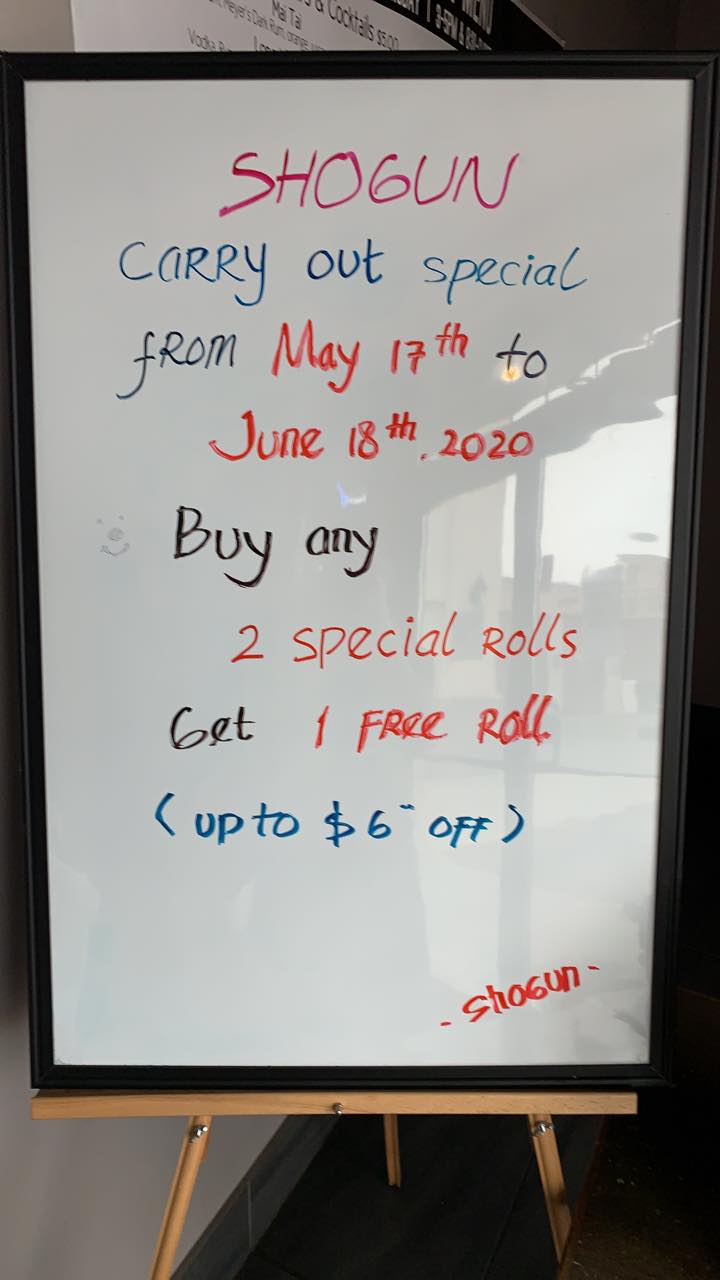 & Cocktails $5.00
Mai Tai
Meyer's Dark Rum, orange,
Vodka
MENU
SHOGUN
CARRY out special
from May 17th to
June 18th. 2020
Buy any
2 special Rolls
Get 1 FRee Roll
(up to $6 OFF)
- Shogun -